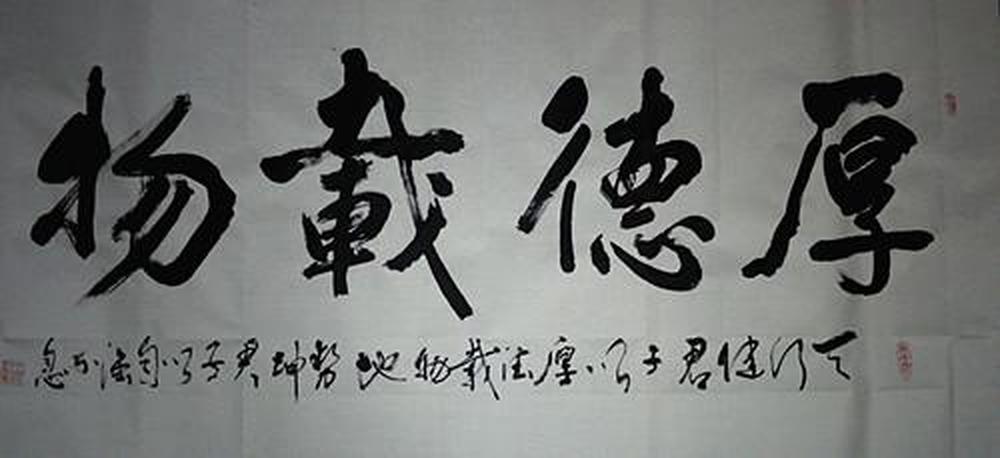 厚德載物
天行健君子以厚德載物地势坤君子以自强不息